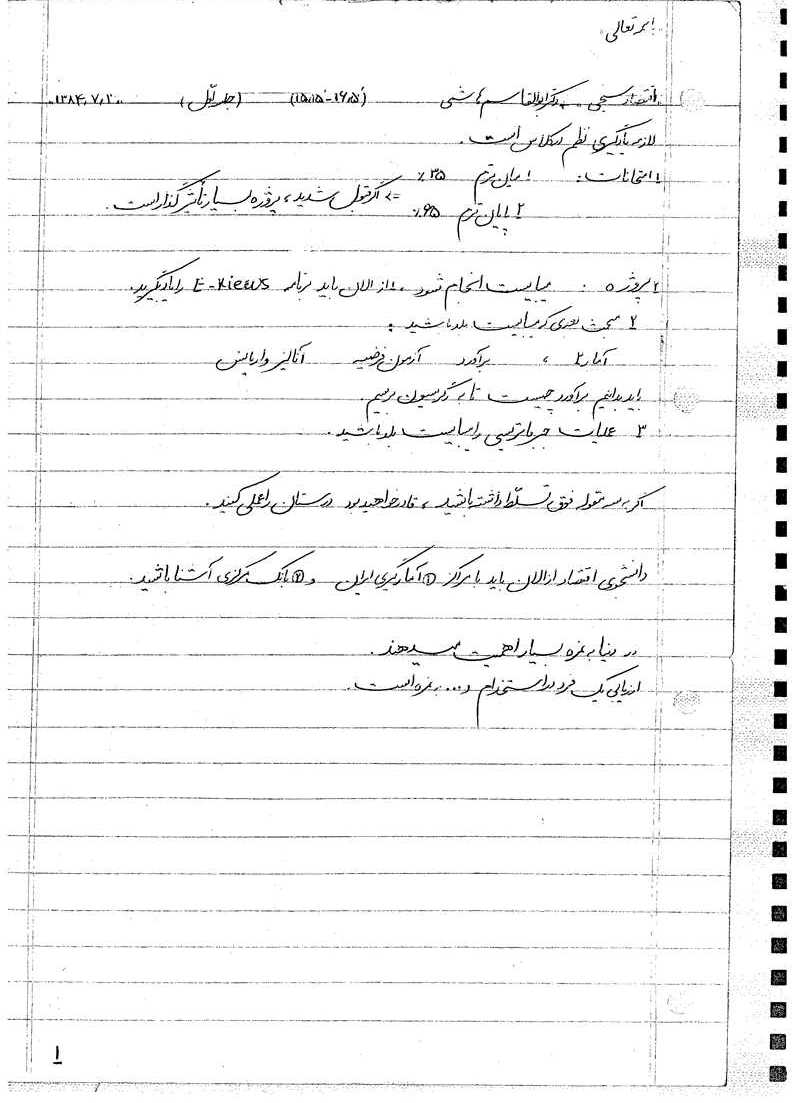 بسمه تعالی
اقتصاد سنجی - دکتر ابوالقاسم هاشمی (۱۵،۱۵ - ۱۶،۵) (جلسه اوّل) ۱۳۸۴،۷،۲۰
لازمه یادگیری نظم در کلاس است.
۱ امتحانات: ۱ میان ترم ۳۵٪
۲ پایان ترم ۶۵٪ => اگر قبول شدید، پروژه بسیار تأثیرگذار است.
۲ پروژه : میبایست انجام شود، ۱ از الان باید برنامه E-Views را یاد بگیرید.
۲ مبحث بعدی که میبایست بلد باشید :
آمار ۲ ، برآورد آزمون فرضیه آنالیز واریانس
باید بدانیم برآورد چیست تا به رگرسیون برسیم.
۳ عملیات جبر ماتریسی را میبایست بلد باشید.
اگر به سه مقوله فوق تسلّط داشته باشید، قادر خواهید بود درستان را عملی کنید.
دانشجوی اقتصاد از الان باید با مراکز ① آمارگیری ایران و ② بانک مرکزی آشنا باشید.
در دنیا به نمره بسیار اهمیت میدهند.
ارزیابی یک فرد در استخدام و... به نمره است.
۱